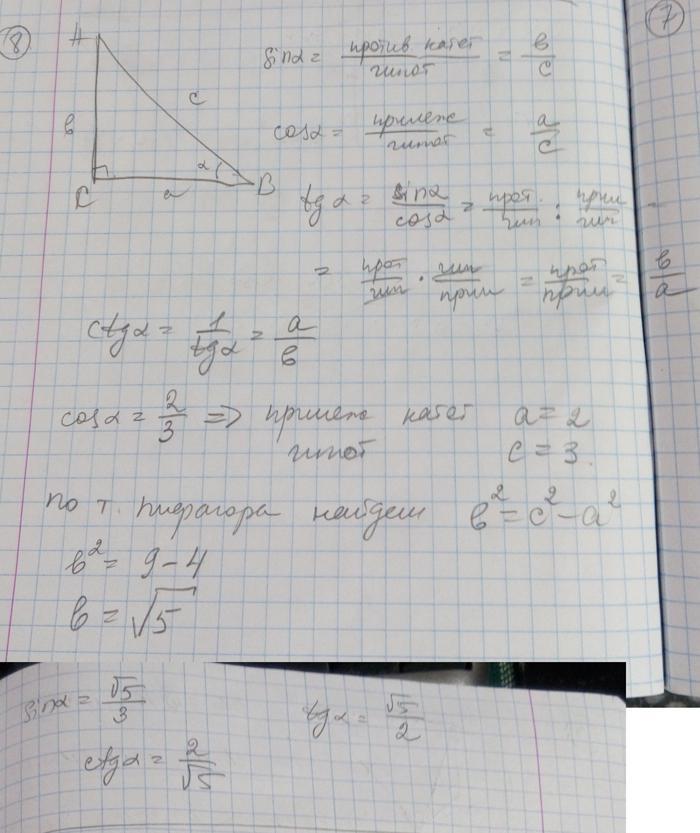 8
7
A
в
c
C
a
α
B
sinα = против катет / гипот = в/c
cosα = прилеж / гипот = a/c
tgα = sinα/cosα = прот./гип : прил/гип =
= прот/гип · гип/прил = прот/прил = в/a
ctgα = 1/tgα = a/в
cosα = 2/3 => прилеж катет a = 2
гипот c = 3.
по т. Пифагора найдем в² = c² - a²
в² = 9 - 4
в = √5
sinα = √5/3 tgα = √5/2
ctgα = 2/√5